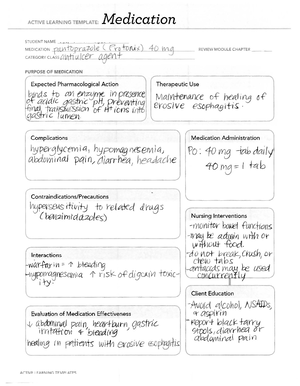 ACTIVE LEARNING TEMPLATE: Medication
STUDENT NAME
MEDICATION pantoprazole (Protonix) 40 mg
REVIEW MODULE CHAPTER
CATEGORY CLASS antiulcer agent
PURPOSE OF MEDICATION
Expected Pharmacological Action
binds to an enzyme in presence
of acidic gastric pH, preventing
final transmission of H+ ions into
gastric lumen
Therapeutic Use
Maintenance of healing of
erosive esophagitis
Complications
hyperglycemia, hypomagnesemia,
abdominal pain, diarrhea, headache
Medication Administration
PO: 40 mg tab daily
40 mg = 1 tab
Contraindications/Precautions
hypersensitivity to related drugs
(benzimidazoles)
Nursing Interventions
-monitor bowel functions
-may be admin with or
without food.
-do not break, crush, or
chew tabs
-antacids may be used
concurrently
Interactions
-warfarin = ↑ bleeding
-hypomagnesemia ↑ risk of digoxin toxic-
ity
Client Education
-Avoid alcohol, NSAIDs,
& aspirin
-Report black tarry
stools, diarrhea or
abdominal pain
Evaluation of Medication Effectiveness
↓ abdominal pain, heartburn, gastric
irritation & bleeding
healing in patients with erosive esophagitis
ACTIVE LEARNING TEMPLATES